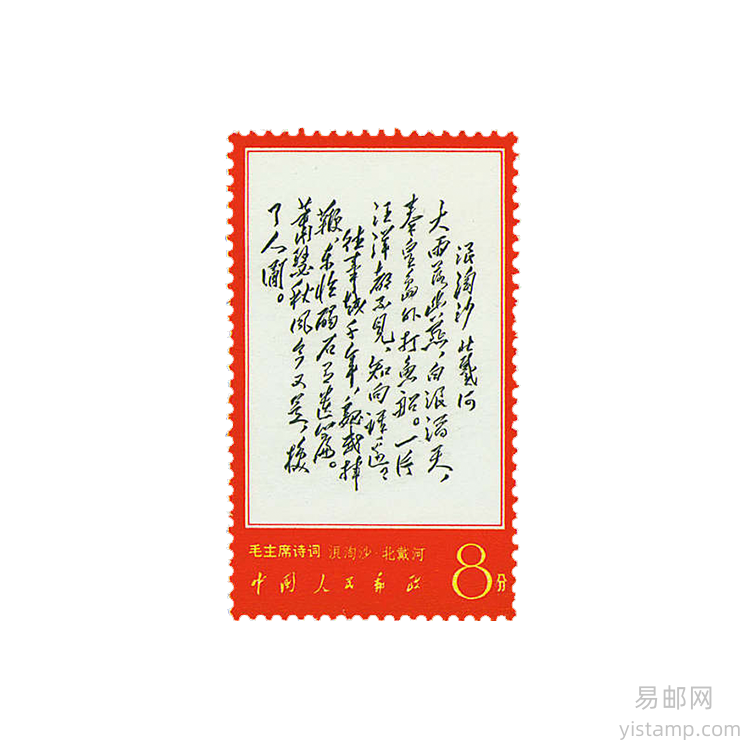 浪淘沙 北戴河
大雨落幽燕，白浪滔天，
秦皇島外打魚船。一片
汪洋都不見，知向誰邊？
往事越千年，魏武揮
鞭，東臨碣石有遺篇。
蕭瑟秋風今又是，換
了人間。
毛主席诗词 浪淘沙·北戴河
中國人民郵政 8分
易邮网
yistamp.com